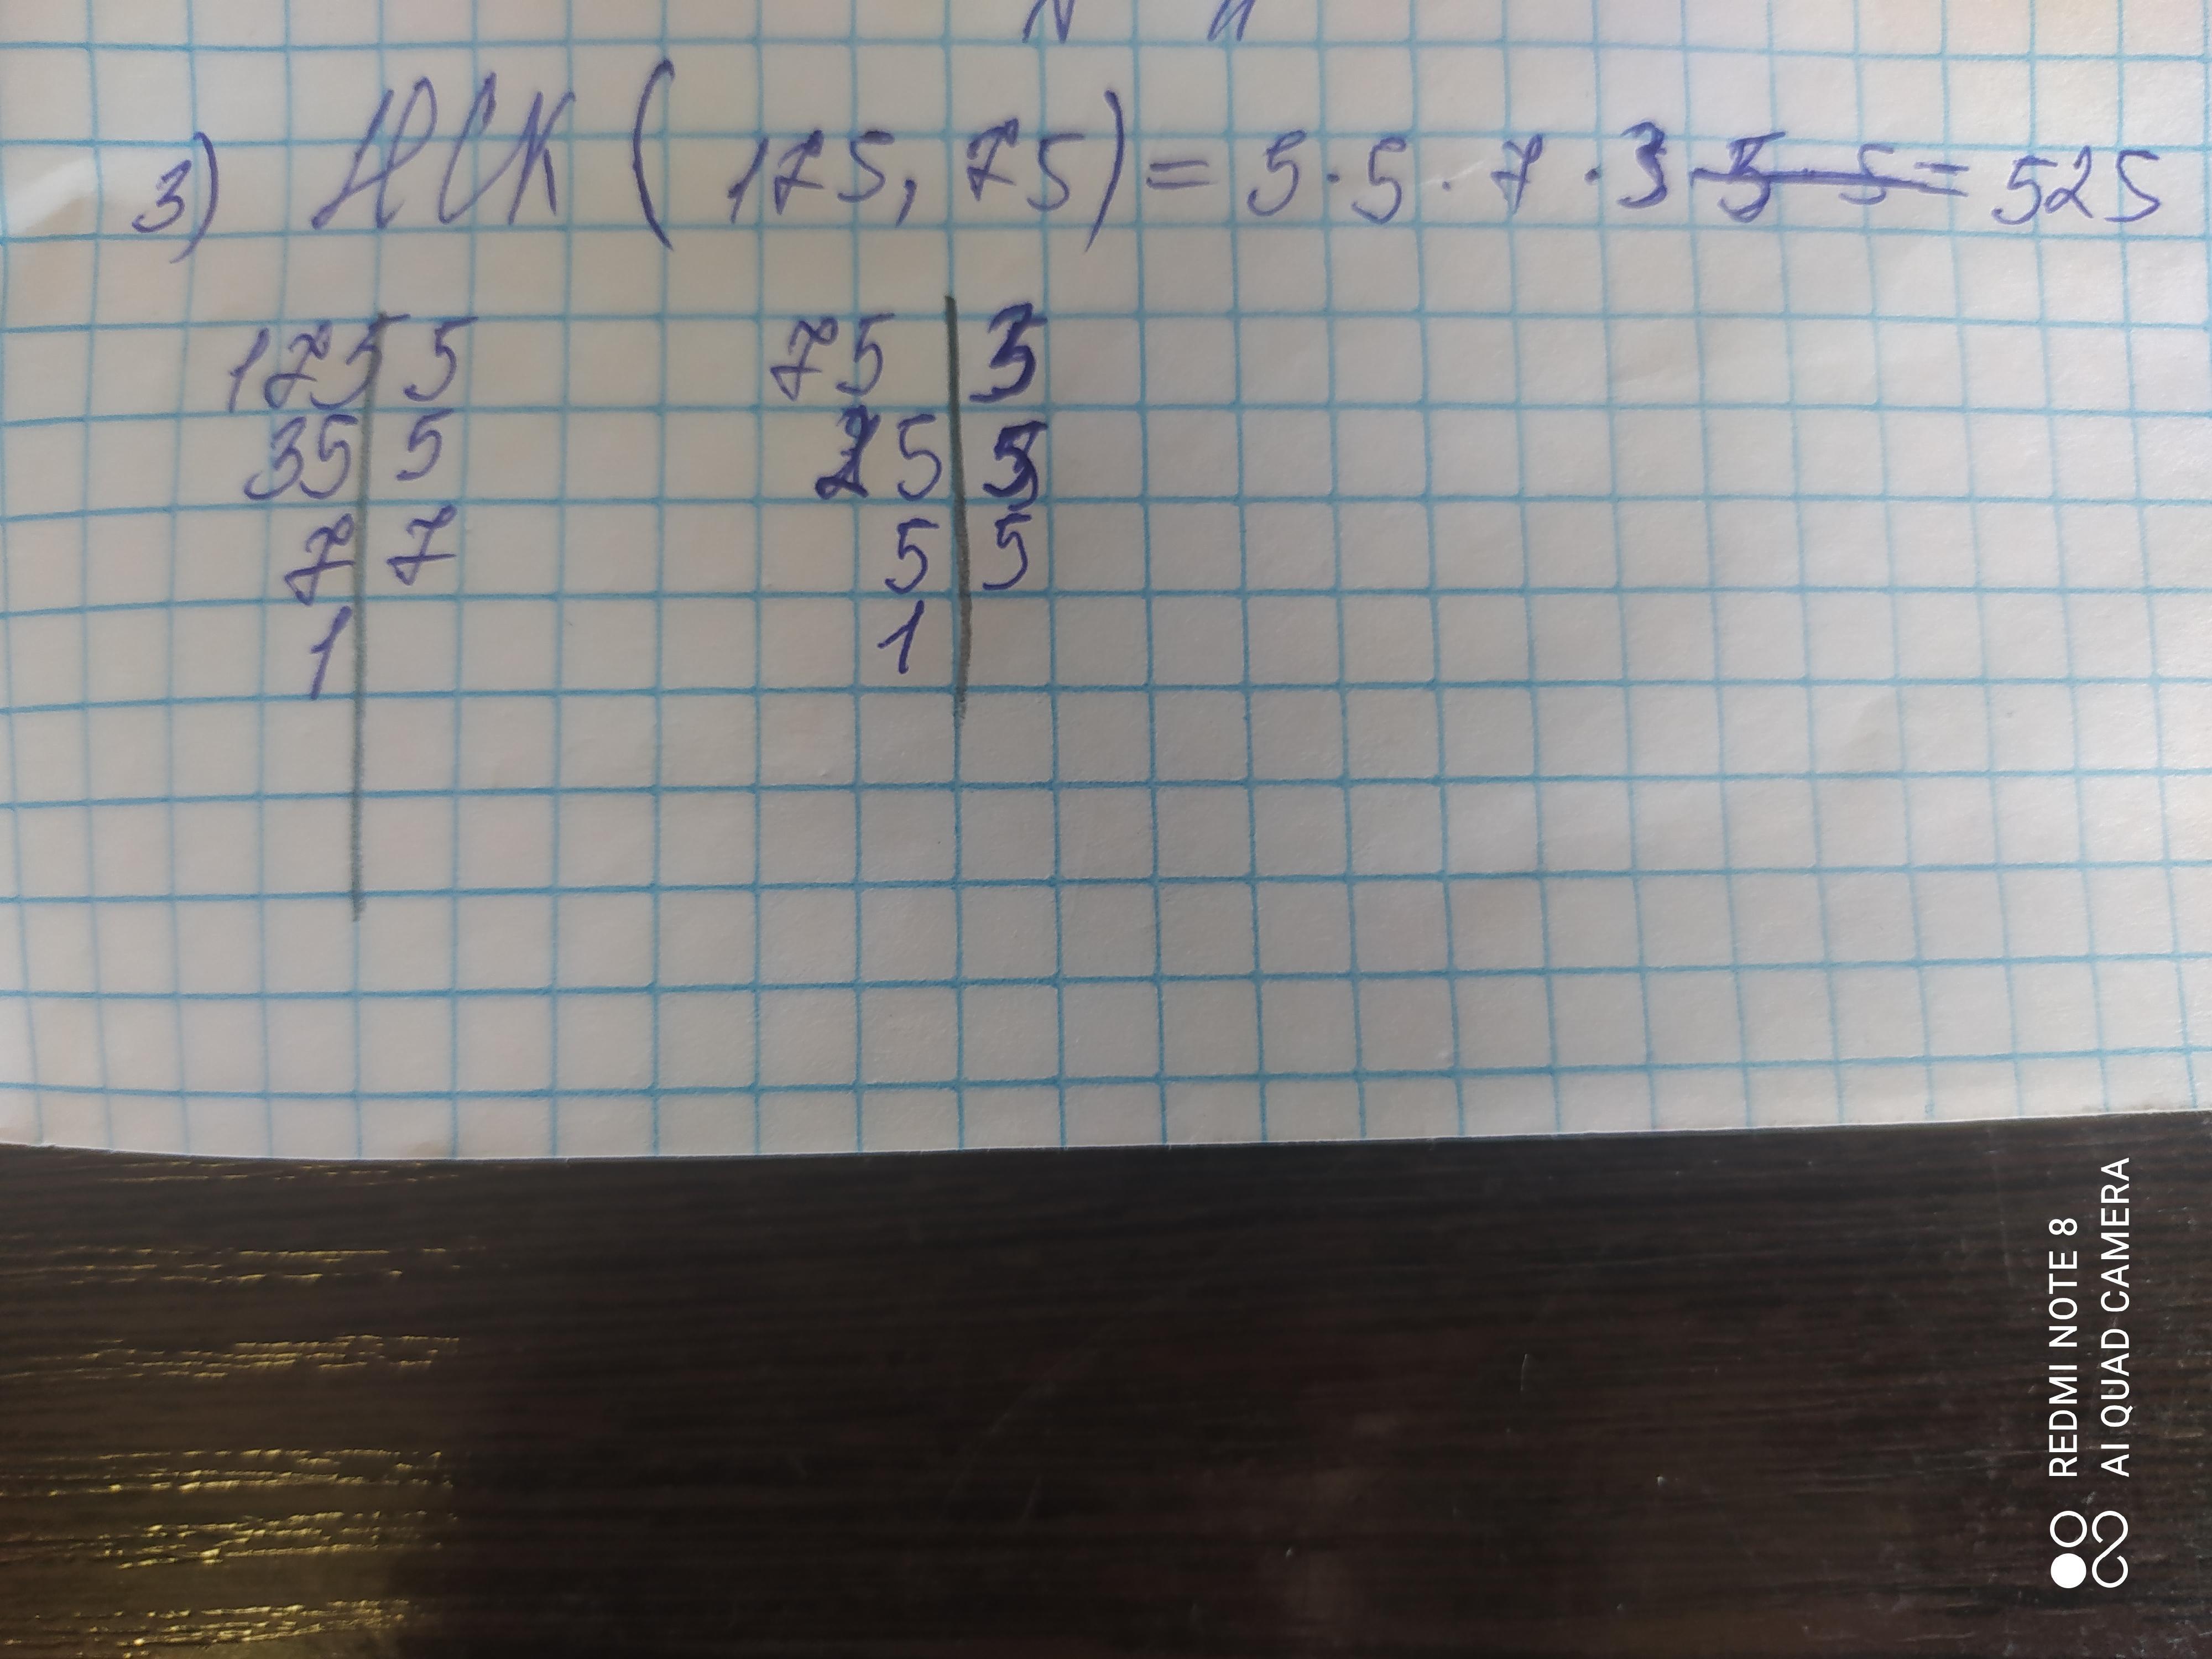 3) НСК (175, 75) = 5·5·7·3 = 525
175 5 75 3
35 5 25 5
7 7 5 5
1 1
REDMI NOTE 8
AI QUAD CAMERA